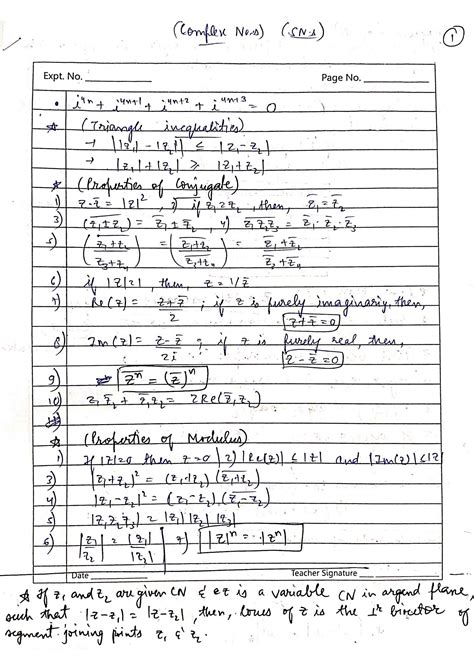 (Complex No.s) (CN.s)
1
Expt. No. ____________ Page No. ____________
• i^4n + i^4n+1 + i^4n+2 + i^4n+3 = 0
☆ (Triangle inequalities)
→ ||z₁| - |z₂|| ≤ |z₁ - z₂|
→ |z₁| + |z₂| ≥ |z₁ + z₂|
☆ (Properties of Conjugate)
1) z·z̄ = |z|², 2) if z₁ = z₂, then, z̄₁ = z̄₂
3) (z₁ ± z₂)‾ = z̄₁ ± z̄₂, 4) (z₁z₂z₃)‾ = z̄₁·z̄₂·z̄₃
5) ((z₁+z₂)/(z₃+z₄))‾ = ((z₁+z₂)‾/(z₃+z₄)‾) = (z̄₁+z̄₂)/(z̄₃+z̄₄)
6) if |z|=1, then, z = 1/z̄
7) Re(z) = (z+z̄)/2 ; if z is purely imaginary, then,
z+z̄=0
8) Im(z) = (z-z̄)/2i ; if z is purely real, then,
z-z̄=0
9) z̄ⁿ = (z̄)ⁿ
10) z₁z̄₂ + z̄₁z₂ = 2Re(z̄₁z₂)
☆ (Properties of Modulus)
1) If |z|=0 then z=0 | 2) |Re(z)| ≤ |z| and |Im(z)| ≤ |z|
3) |z₁+z₂|² = (z₁+z₂) (z̄₁+z̄₂)
4) |z₁-z₂|² = (z₁-z₂) (z̄₁-z̄₂)
5) |z₁z₂z₃| = |z₁| |z₂| |z₃|
6) |z₁/z₂| = |z₁|/|z₂| 7) |z|ⁿ = |zⁿ|
Date ____________ Teacher Signature ____________
☆ If z₁ and z₂ are given CN & z is a variable CN in argend plane,
such that |z-z₁| = |z-z₂|, then, locus of z is the ⊥r bisector of
segment joining points z₁ & z₂.